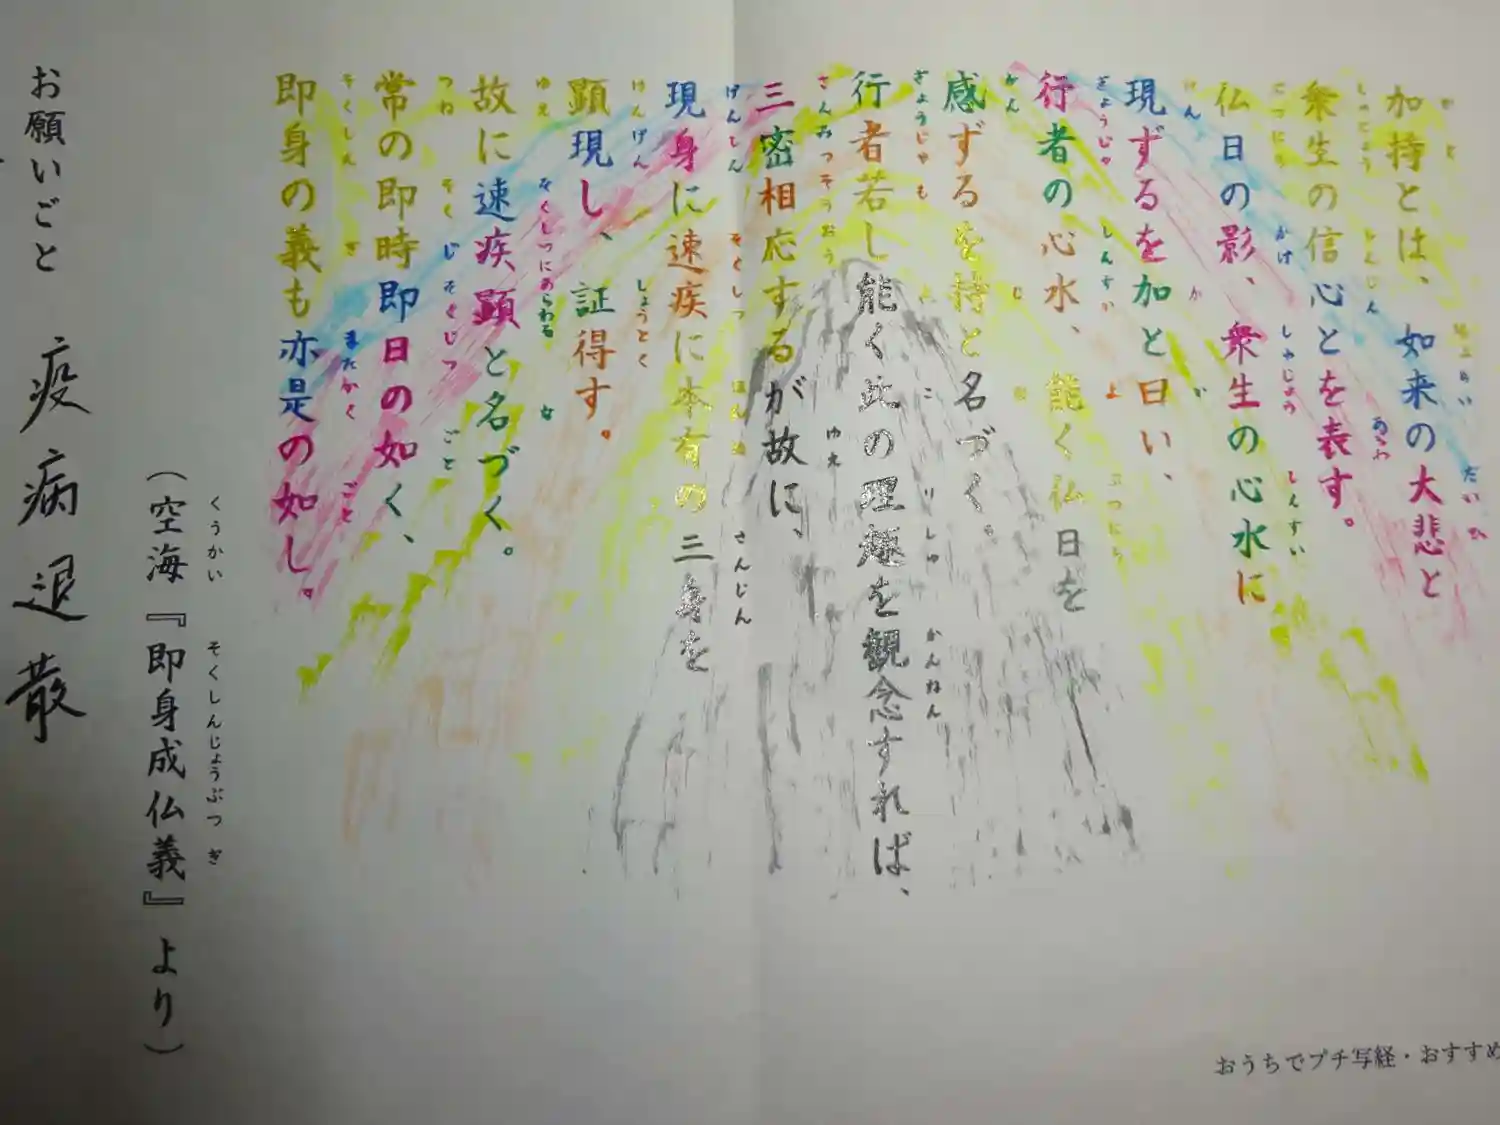 加持とは、如来の大悲と
衆生の信心とを表す。
仏日の影、衆生の心水に
現ずるを加と曰い、
行者の心水、能く仏日を
感ずるを持と名づく。
行者若し能く此の理趣を観念すれば、
三密相応するが故に、
現身に速疾に本有の三身を
顕現し、証得す。
故に速疾顕と名づく。
常の即時即日の如く、
即身の義も亦是の如し。
くうかい そくしんじょうぶつぎ
(空海『即身成仏義』より)
お願いごと 疫病退散
おうちでプチ写経・おすすめ